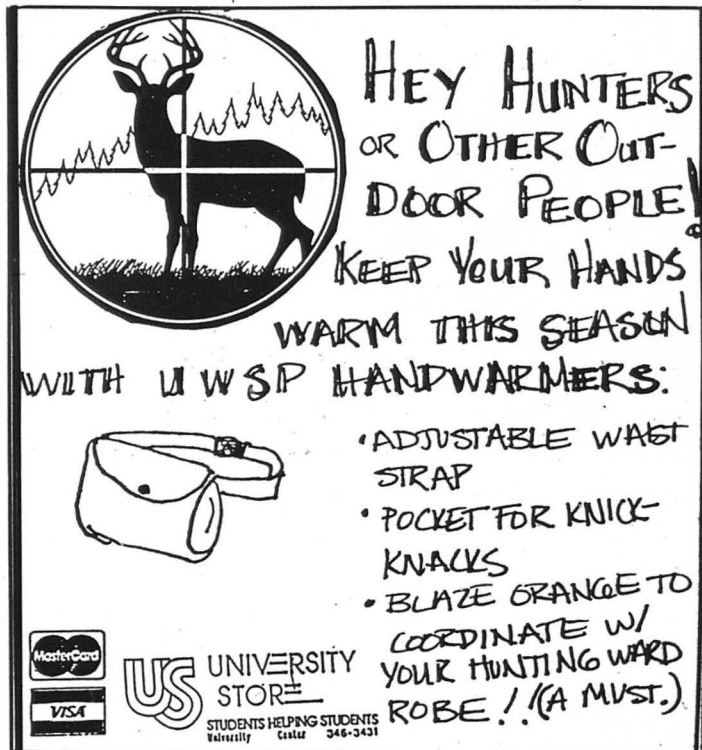 HEY HUNTERS
OR OTHER OUT-
DOOR PEOPLE!
KEEP YOUR HANDS
WARM THIS SEASON
WITH UWSP HANDWARMERS:
• ADJUSTABLE WAIST
STRAP
• POCKET FOR KNICK-
KNACKS
• BLAZE ORANGE TO
COORDINATE W/
YOUR HUNTING WARD
ROBE!! (A MUST.)
MasterCard
VISA
US UNIVERSITY
STORE
STUDENTS HELPING STUDENTS
University Center 346-3431